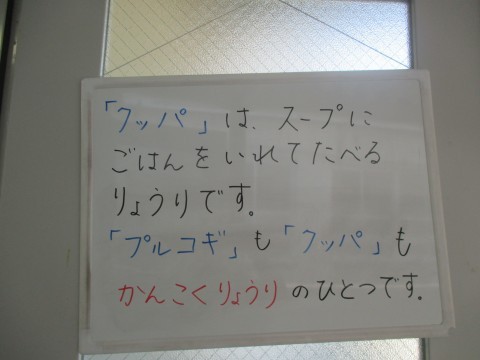 「クッパ」は、スープに
ごはんをいれてたべる
りょうりです。
「プルコギ」も「クッパ」も
かんこくりょうりのひとつです。